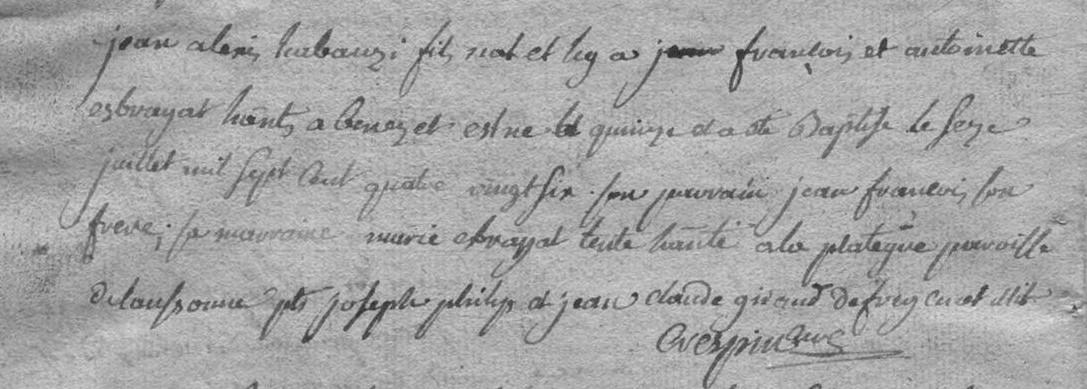 jean alexis habauzi fils nat et leg a jean françois et antoinette
esbrayat hants a benezet est ne le quinze et a ete Baptise le seze
juillet mil sept Cent quatre vingt six son parrain jean francois son
frere, sa marraine marie ebrayat tente hante a la plategue paroisse
delaussonne pts joseph philip et jean claude giraud de frey
Crespin Cure